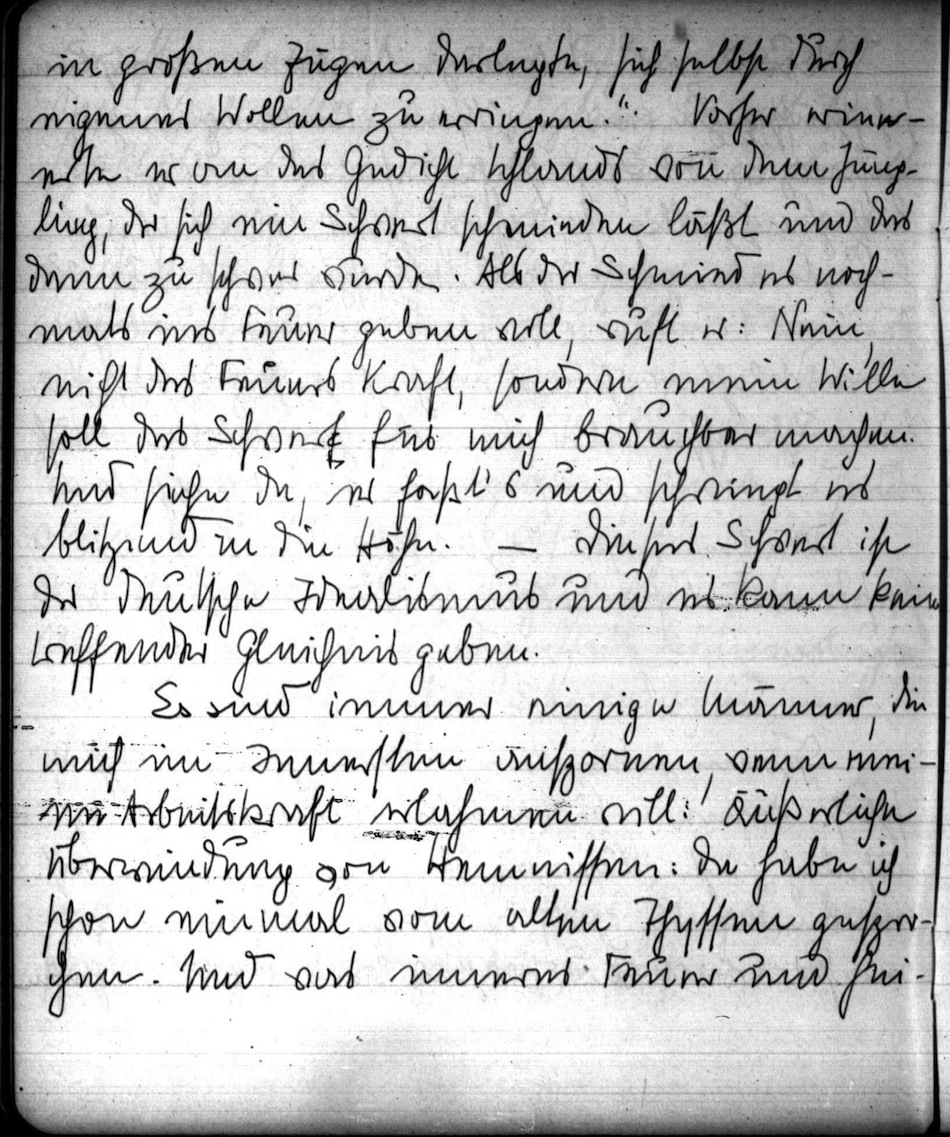 in großen Zügen darlegte, sich selbst durch
eigenes Wollen zu erringen.". Vorher erinn-
erte er an das Gedicht Uhlands von dem Jüng-
ling, der sich ein Schwert schmieden läßt und das
dann zu schwer wurde. Als der Schmied es noch-
mals ins Feuer geben will, ruft er: Nein,
nicht des Feuers Kraft, sondern mein Wille
soll das Schwert für mich brauchbar machen.
Und siehe da, er faßt's und schwingt es
blitzend in die Höhe. — Dieses Schwert ist
der deutsche Idealismus und es kann kein
treffender Gleichnis geben.
Es sind immer einige Männer, die
mich im Innersten anspornen, wenn mei-
ne Arbeitskraft erlahmen will: Äußerliche
Überwindung von Hemnissen: da habe ich
schon einmal vom alten Thyssen gespro-
chen. Und was inneres Feuer und hei-